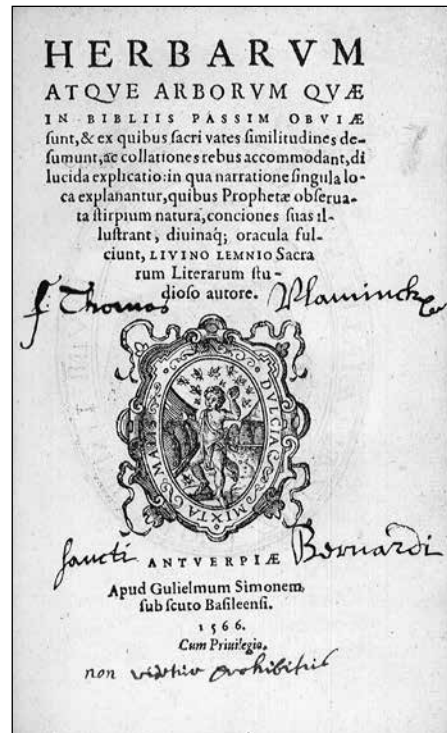 HERBARVM
ATQVE ARBORVM QVÆ
IN BIBLIIS PASSIM OBVIÆ
ſunt, & ex quibus ſacri vates ſimilitudines de-
ſumunt, ac collationes rebus accommodant, di
lucida explicatio: in qua narratione ſingula lo-
ca explanantur, quibus Prophetæ obſerua-
ta ſtirpium natura, conciones ſuas il-
luſtrant, diuinaq; oracula ful-
ciunt, LIVINO LEMNIO Sacra
rum Literarum ſtu-
dioſo autore.
f Thomas Vlaminck
DVLCIA MIXTA MALIS
ſancti Bernardi
ANTVERPIÆ
Apud Gulielmum Simonem,
ſub ſcuto Baſileenſi.
1566.
Cum Priuilegio.
non videtur prohibitus